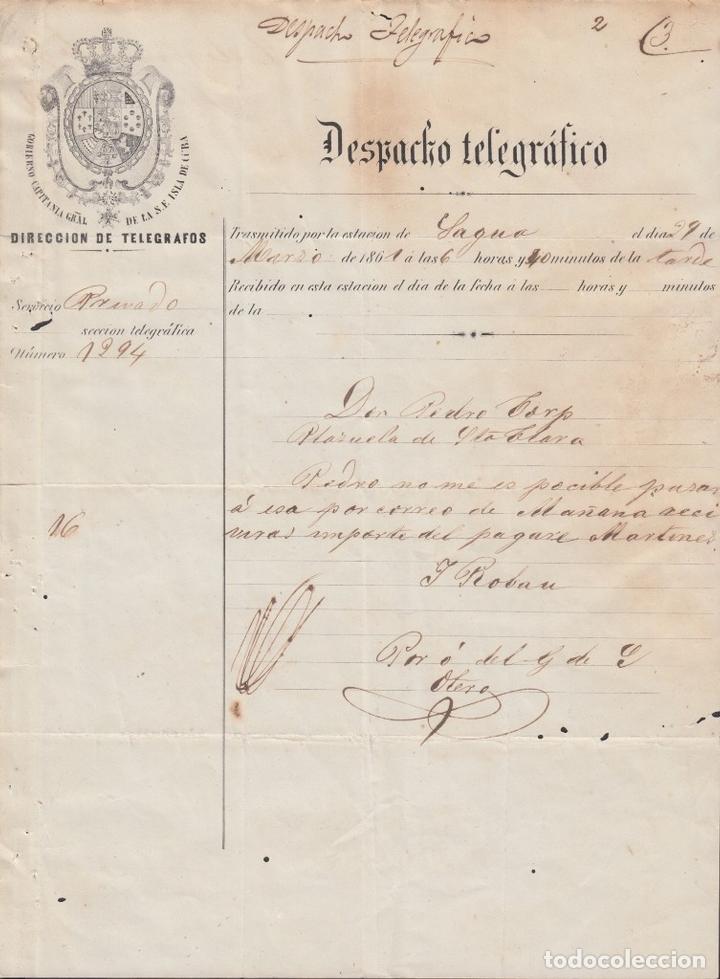 Despacho Telegrafico 2 3
GOBIERNO CAPITANIA GRAL DE LA S.F. ISLA DE CUBA
DIRECCION DE TELEGRAFOS
Despacho telegráfico
Trasmitido por la estacion de Sagua el dia 29 de
Marzo de 1861 á las 6 horas y 40 minutos de la tarde
Recibido en esta estacion el dia de la fecha á las horas y minutos
de la
Servicio Privado
seccion telegráfica
Número 1294
Don Pedro
Plazuela de Sta Clara
Pedro no me es pocible pasar
á esa por correo de Mañana reci
viras importe del pagare Martinez
J Robau
16
Por ó del G de S
Otero
todocoleccion